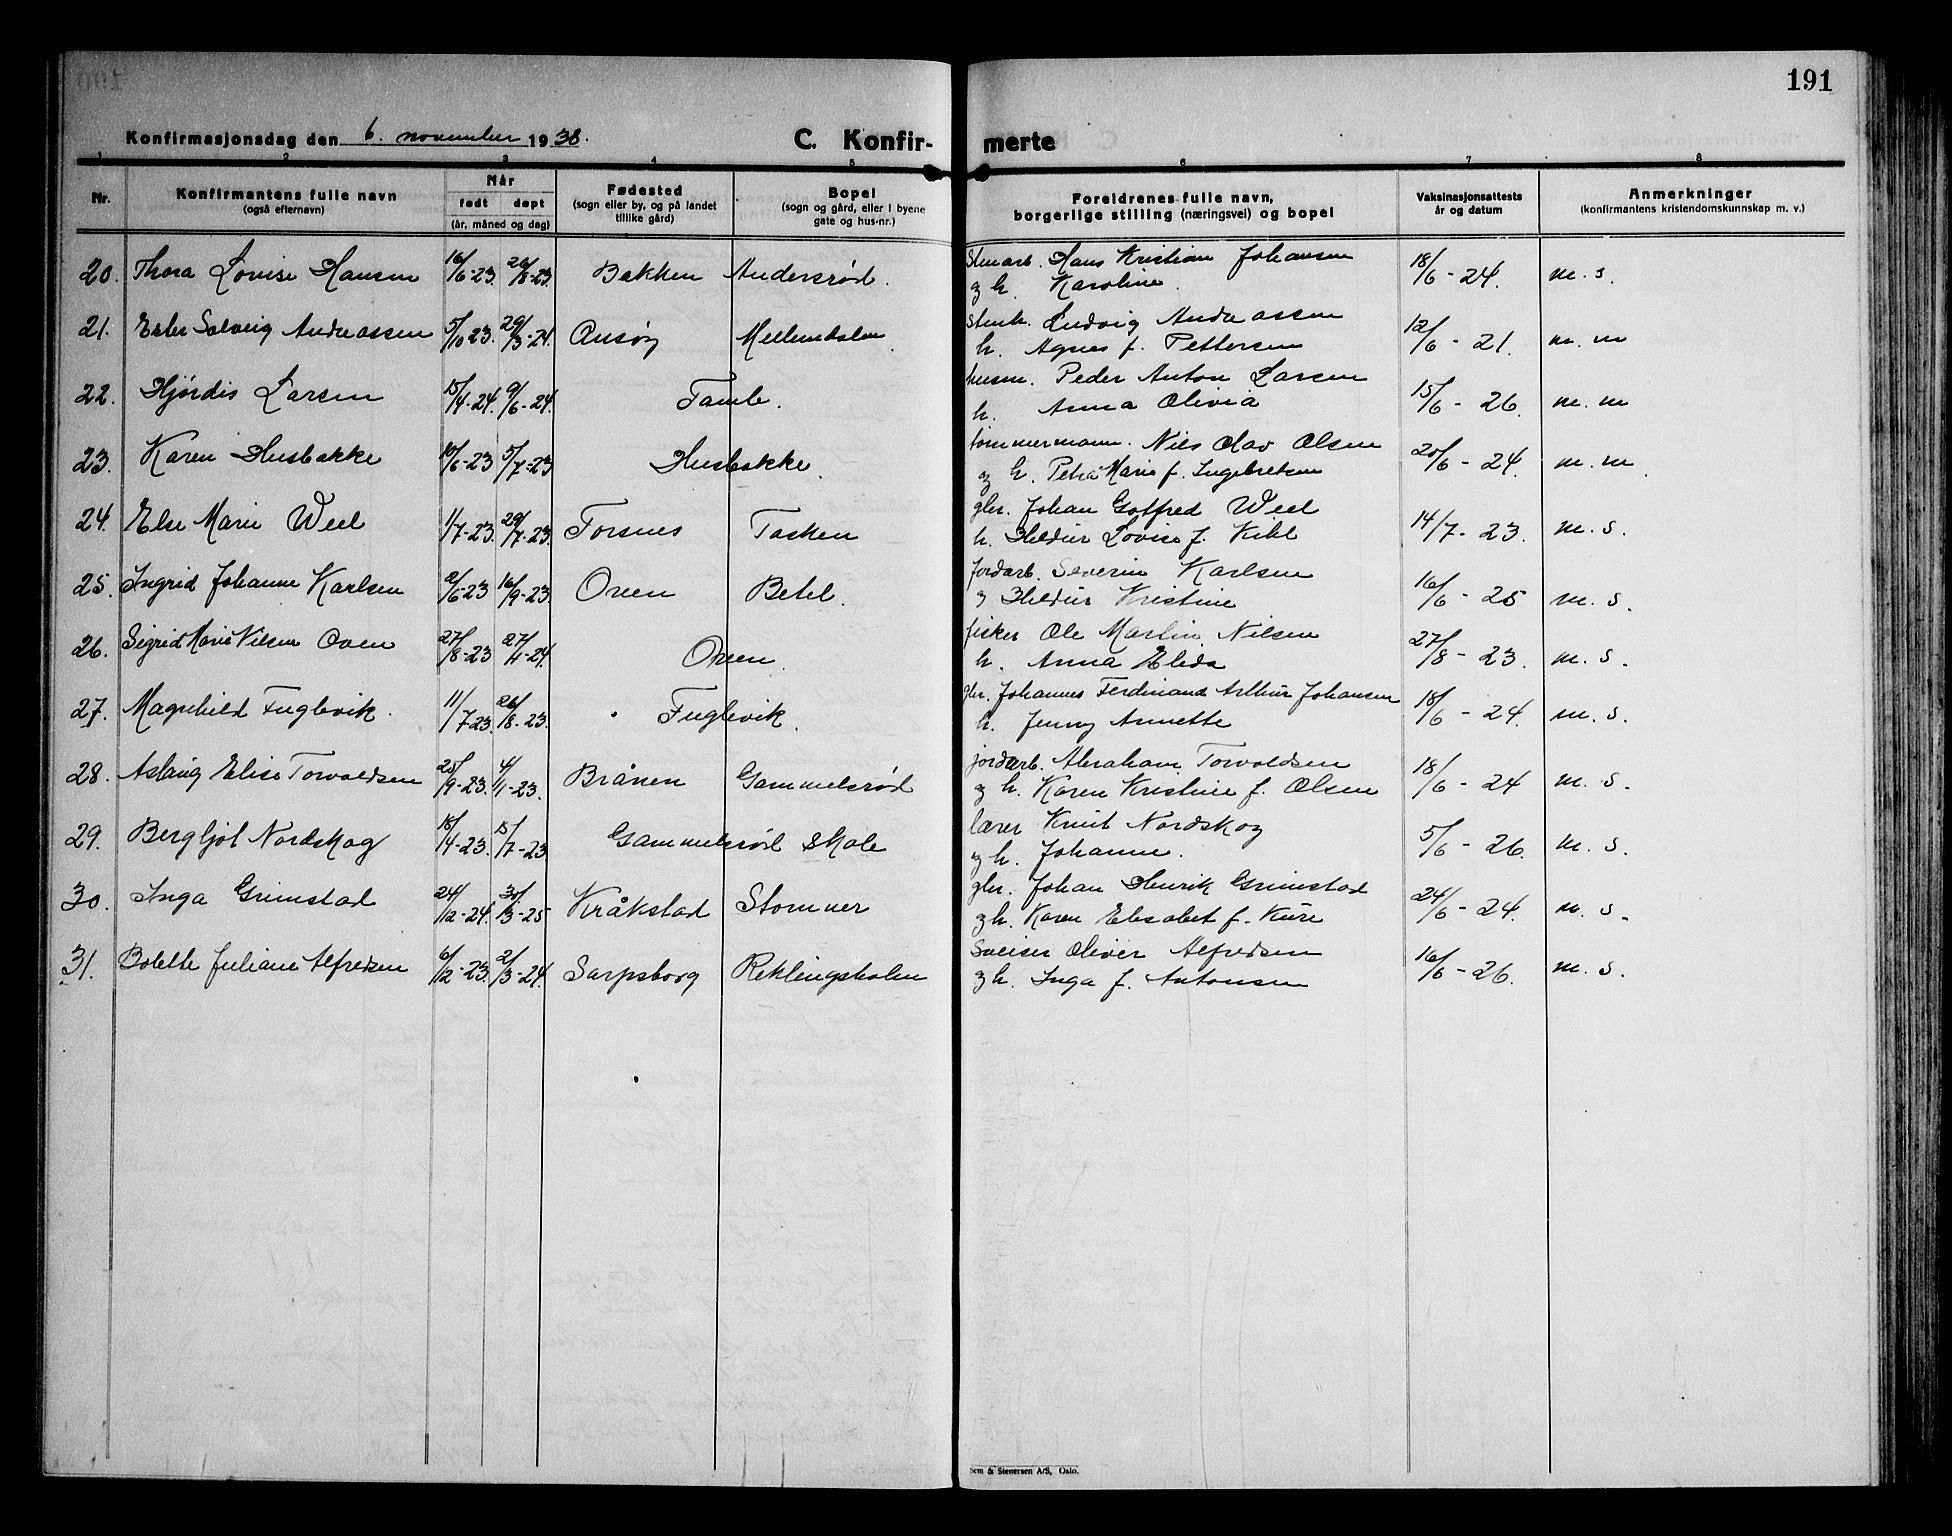 191
Konfirmasjonsdag den 6. november 1938. C. Konfir- merte
1 2 3 4 5 6 7 8
Nr. Konfirmantens fulle navn (også efternavn) Når født døpt (år, måned og dag) Fødested (sogn eller by, og på landet tillike gård) Bopel (sogn og gård, eller i byene gate og hus-nr.) Foreldrenes fulle navn, borgerlige stilling (næringsvei) og bopel Vaksinasjonsattests år og datum Anmerkninger (konfirmantens kristendomskunnskap m. v.)
20. Thora Lovise Hansen 16/6-23. 26/8-23. Bakken Andersrød. Stenarb. Hans Kristian Johansen 18/6-24. m. s.
og h. Karoline.
21. Ester Solveig Andreassen 5/10 23. 29/3-24. Ansøy Mellemdalen Stenh. Ludvig Andreassen 12/6-21. m. m
h. Agnes f. Pettersen
22. Hjørdis Larsen 15/4-24. 9/6-24. Tamb. husm. Peder Anton Larsen 15/6-26. m. m
h. Anna Olivia
23. Karen Husbakke 10/6-23 5/7-23 Husbakke. tømmermann. Nils Olav Olsen 20/6-24. m. m.
og h. Petra Marie f. Ingebretsen
24. Else Marie Weel 1/7-23. 29/7-23. Torsnes Tasken gbr. Johan Gotfred Weel 14/7-23. m. s.
h. Hildur Lovise f. Kihl
25. Ingrid Johanne Karlsen 2/6-23 16/9-23. Oven Betel. jordarb. Severin Karlsen 16/6-25 m. s.
og Hildur Kristine
26. Sigrid Marie Nilsen Oven 27/8-23 27/4-24. Oven. fisker Ole Martin Nilsen 27/8-23. m. s.
h. Anna Elida
27. Magnhild Fuglevik. 11/7-23. 26/8-23. Fuglevik. gbr. Johannes Ferdinand Arthur Johansen 18/6-24. m. s.
h. Jenny Annette
28. Aslaug Elise Torvaldsen 25/9-23. 4/1-23. Brånen Gammelsrød jordarb. Abraham Torvaldsen 18/6-24 m. s.
og h. Karen Kristine f. Olsen
29. Bergljot Nordskog 18/4-23. 15/7-23 Gammelsrød skole lærer Knut Nordskog 5/6-26. m. s.
og h. Johanne.
30. Inga Grimstad 24/12-24. 30/3-25 Kråkstad Stomner gbr. Johan Henrik Grimstad 24/6-24. m. s.
og h. Karen Elisabet f. Kure
31. Bolette Juliane Alfredsen 6/12-23. 2/3-24. Sarpsborg Reklingsholen Sveiser Oliver Alfredsen 16/6-26. m. s.
og h. Inga f. Antonsen
Sem & Stenersen A/S, Oslo.